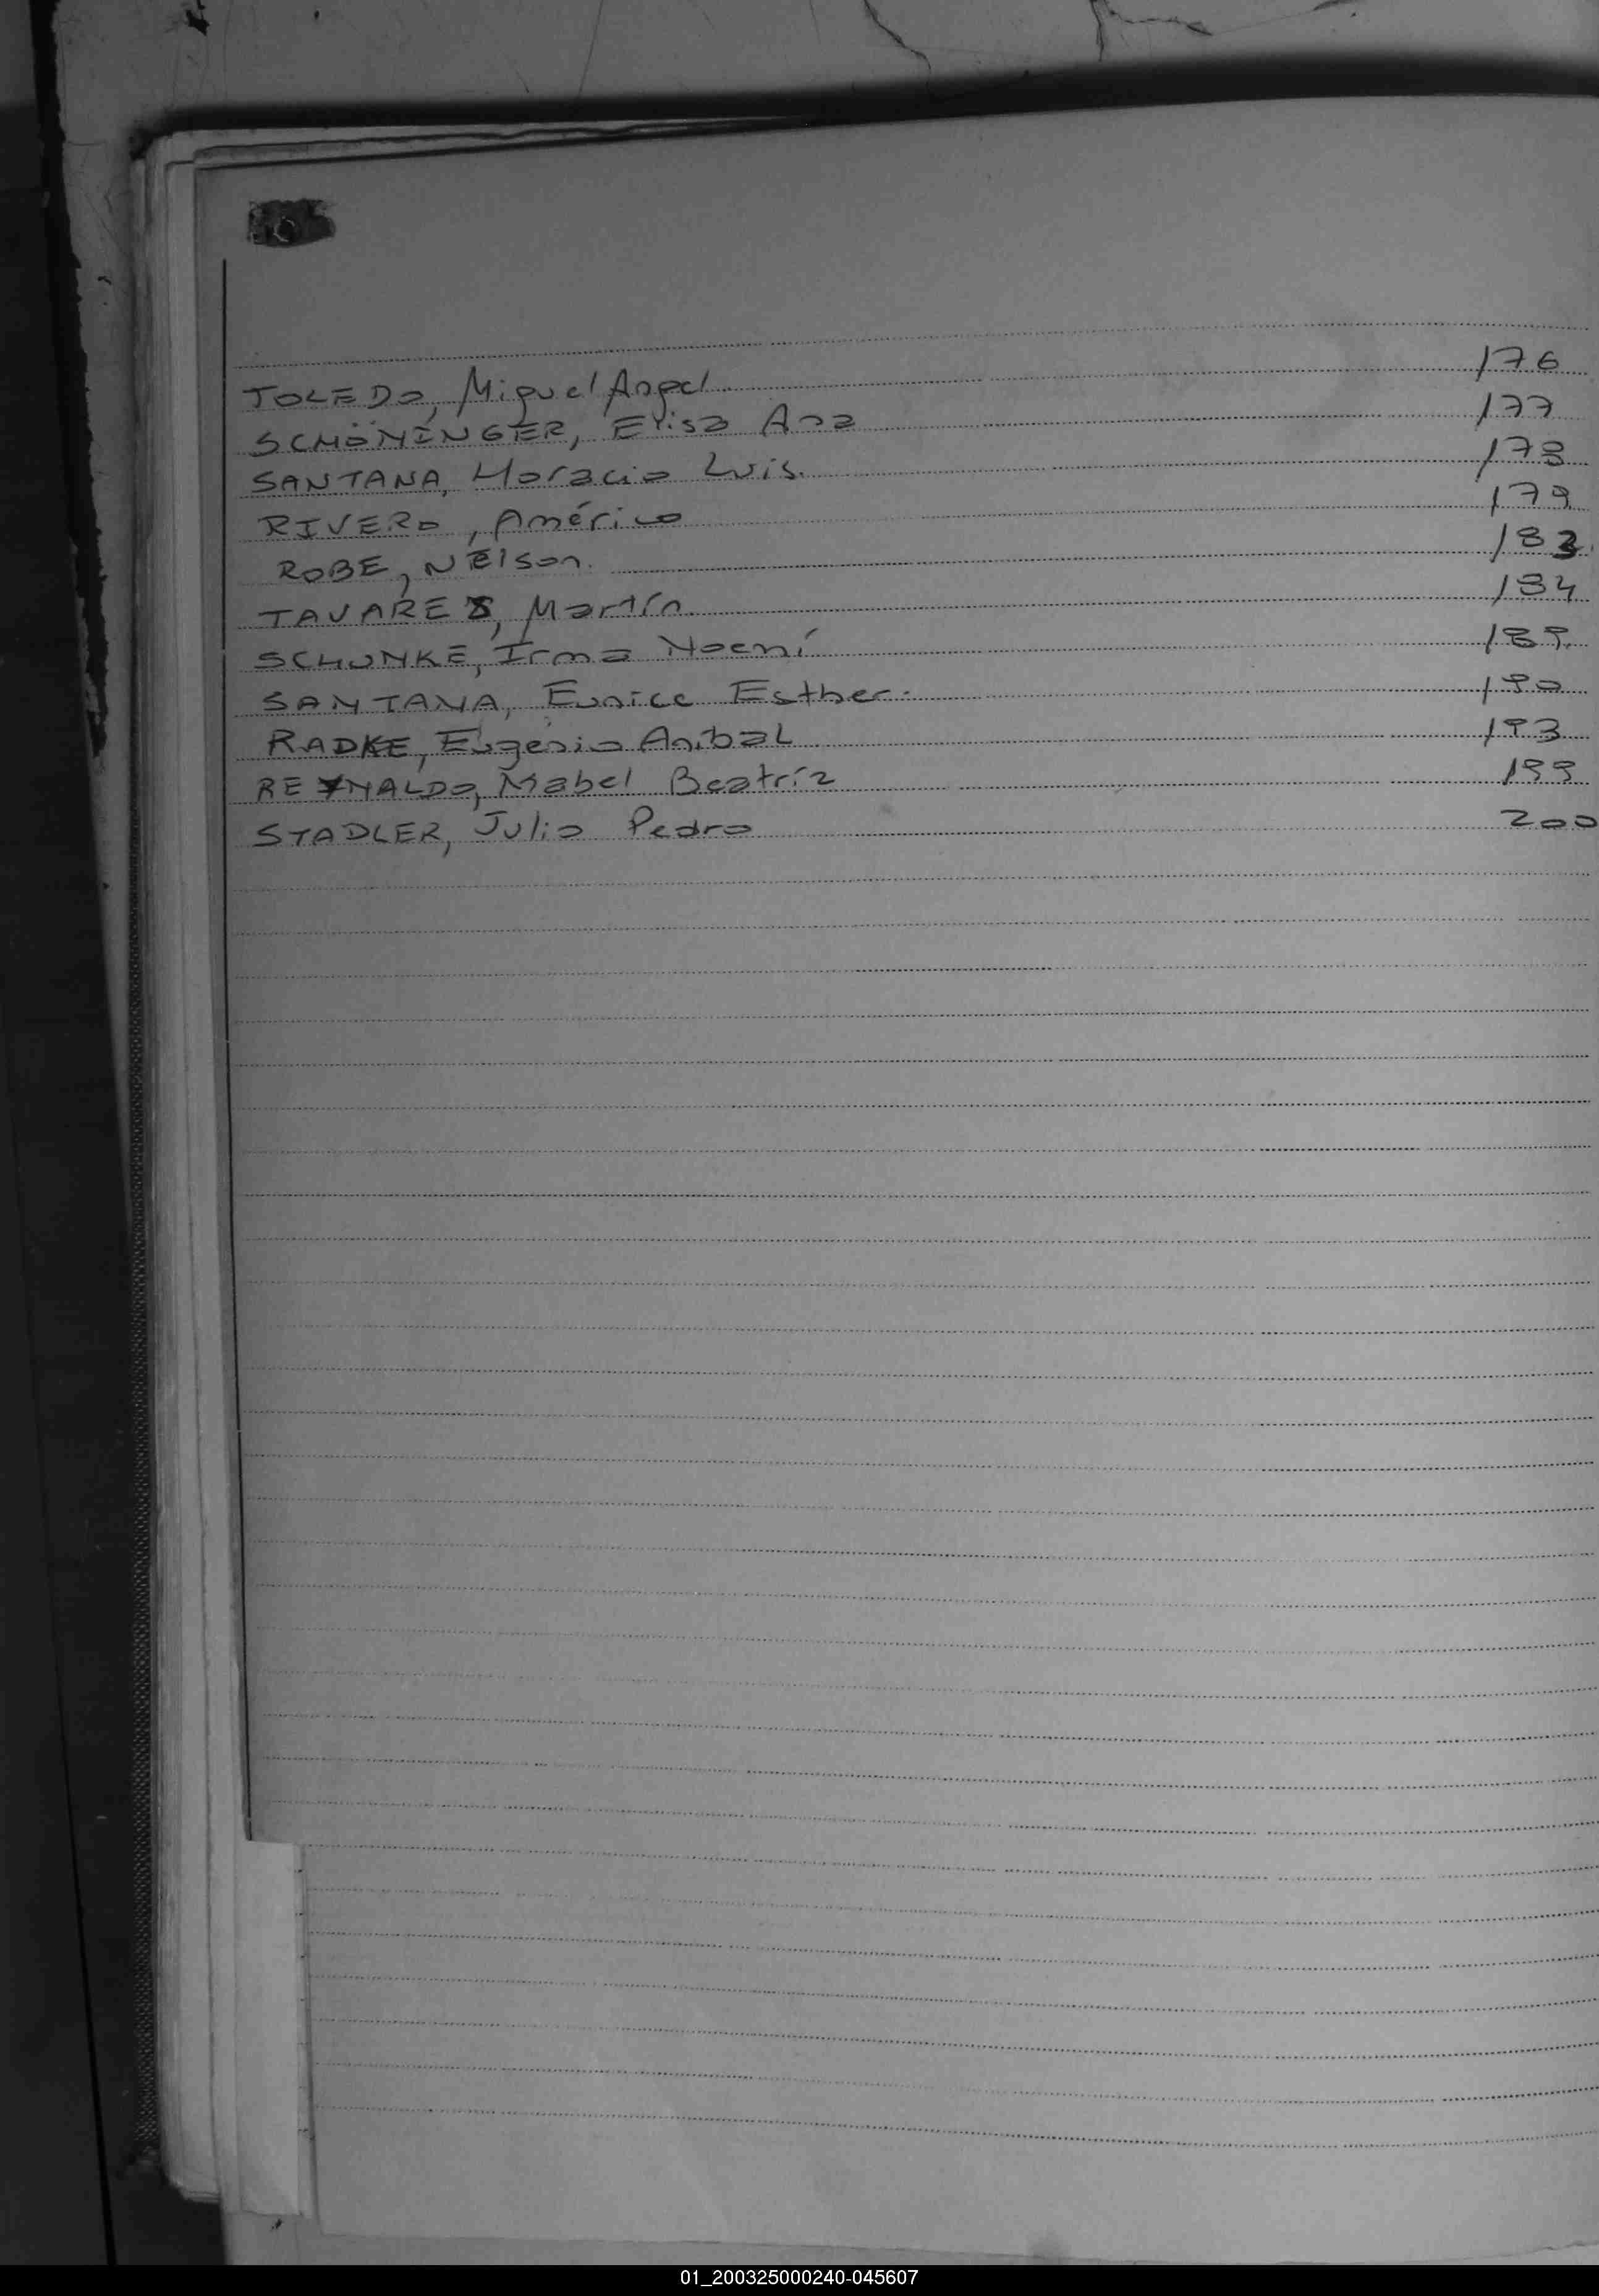 TOLEDO, Miguel Angel 176
SCHÖNINGER, Elisa Ana 177
SANTANA, Horacio Luis. 178
RIVERO, Américo 179
ROBE, Nelson. 183
TAVARES, Martín. 184
SCHUNKE, Irma Noemí 189
SANTANA, Eunice Esther. 190
RADKE, Eugenio Anibal 193
REYNALDO, Mabel Beatríz 199
STADLER, Julio Pedro 200
01_200325000240-045607